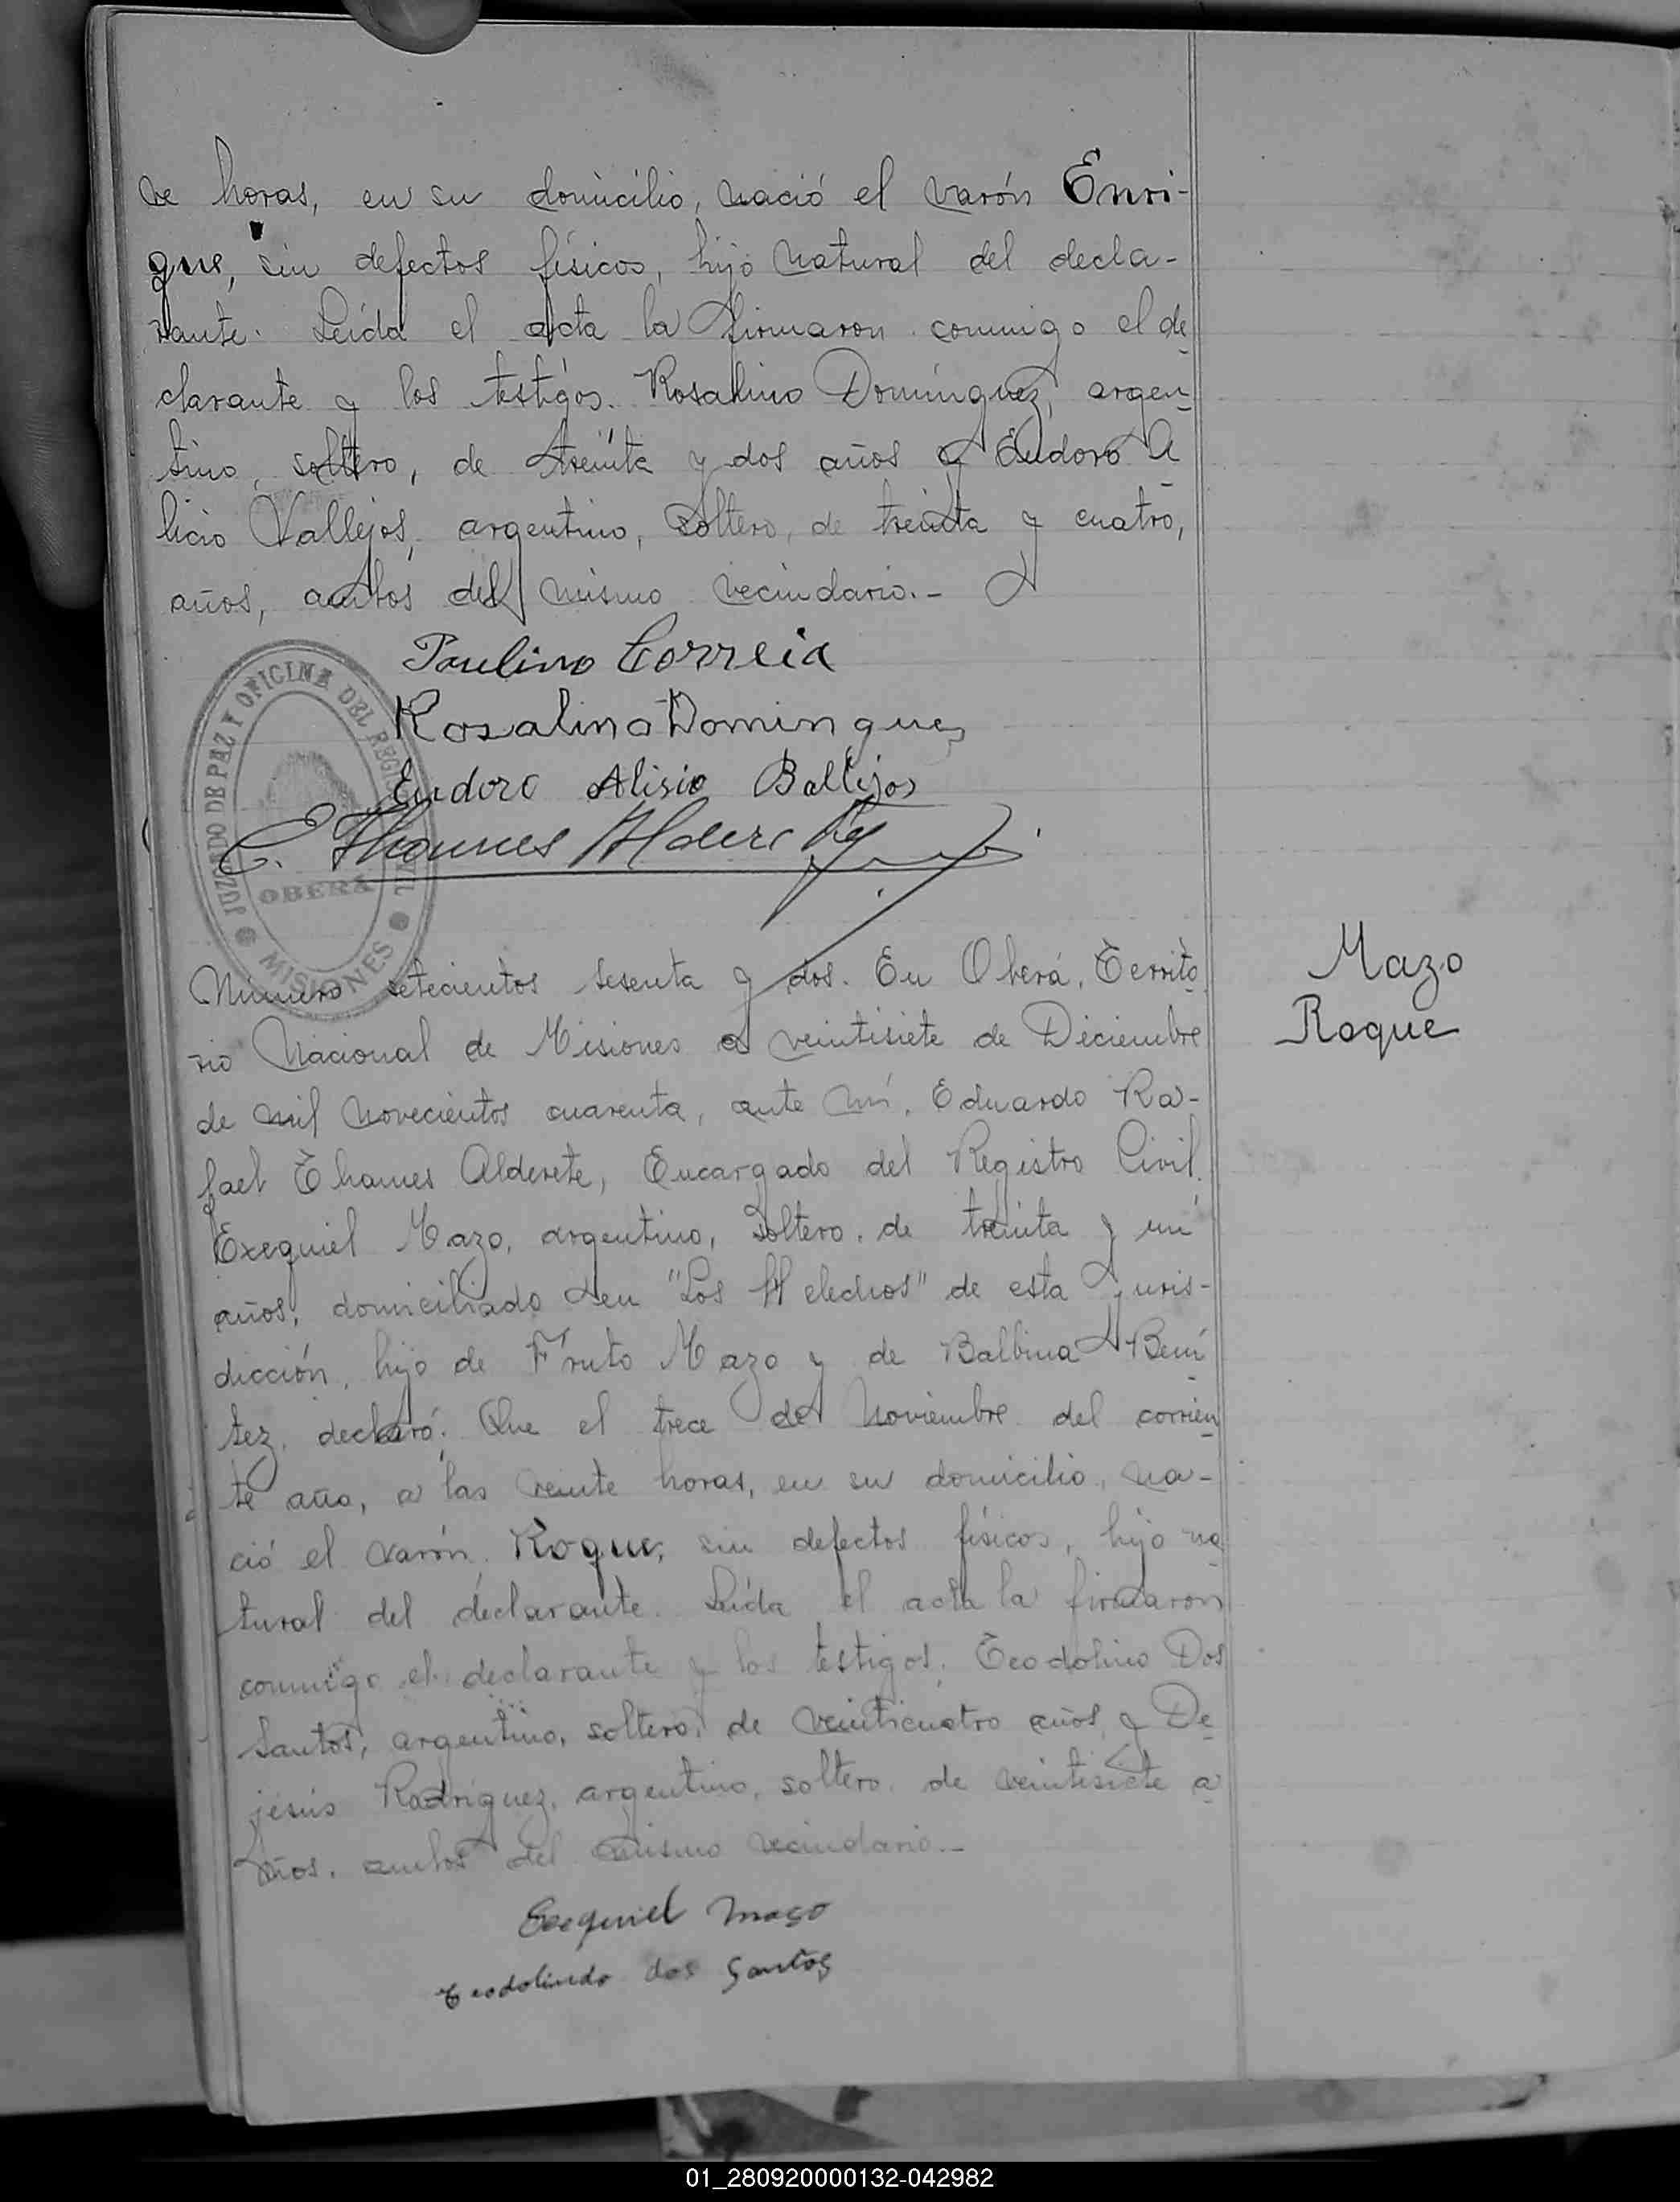 ve horas, en su domicilio, nació el varón Enri-
que, sin defectos físicos, hijo natural del decla-
rante. Leída el acta la firmaron conmigo el de
clarante y los testigos. Rosalino Domínguez, argen-
tino, soltero, de treinta y dos años y Eudoro A
licio Vallejos, argentino, soltero, de treinta y cuatro,
años, ambos del mismo vecindario.-
Paulino Correia
Rosalino Dominguez
Eudoro Alisio Ballejos
E. Thames Alderete
JUZGADO DE PAZ Y OFICINA DEL REGISTRO CIVIL
OBERÁ
MISIONES
Número setecientos sesenta y dos. En Oberá, Territo
rio Nacional de Misiones a veintisiete de Diciembre
de mil novecientos cuarenta, ante mí, Eduardo Ra-
fael Thames Alderete, Encargado del Registro Civil.
Exequiel Mazo, argentino, soltero, de treinta y un
años, domiciliado en "Los Helechos" de esta juris-
dicción, hijo de Fruto Mazo y de Balbina Bení
tez, declaró: Que el trece de Noviembre del corrien
te año, a las veinte horas, en su domicilio, na-
ció el varón, Roque, sin defectos físicos, hijo na
tural del declarante. Leída el acta la firmaron
conmigo el declarante y los testigos. Teodolino Dos
Santos, argentino, soltero, de veinticuatro años y De
jesús Rodríguez, argentino, soltero, de veintisiete a
ños, ambos del mismo vecindario.-
Exequiel Maso
Teodolindo dos Santos
Mazo
Roque
01_280920000132-042982